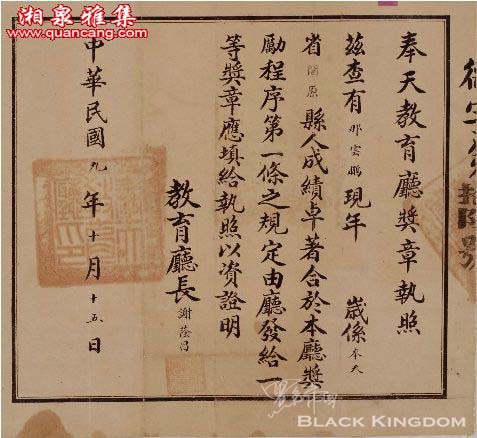 湘泉雅集
www.quancang.com
奉天教育廳獎章執照
茲查有那雲鵬現年 歲係奉天
省開原縣人成績卓著合於本廳獎
勵程序第一條之規定由廳發給一
等獎章應填給執照以資證明
教育廳長謝蔭昌
中華民國九年十月十五日
號
BLACK KINGDOM